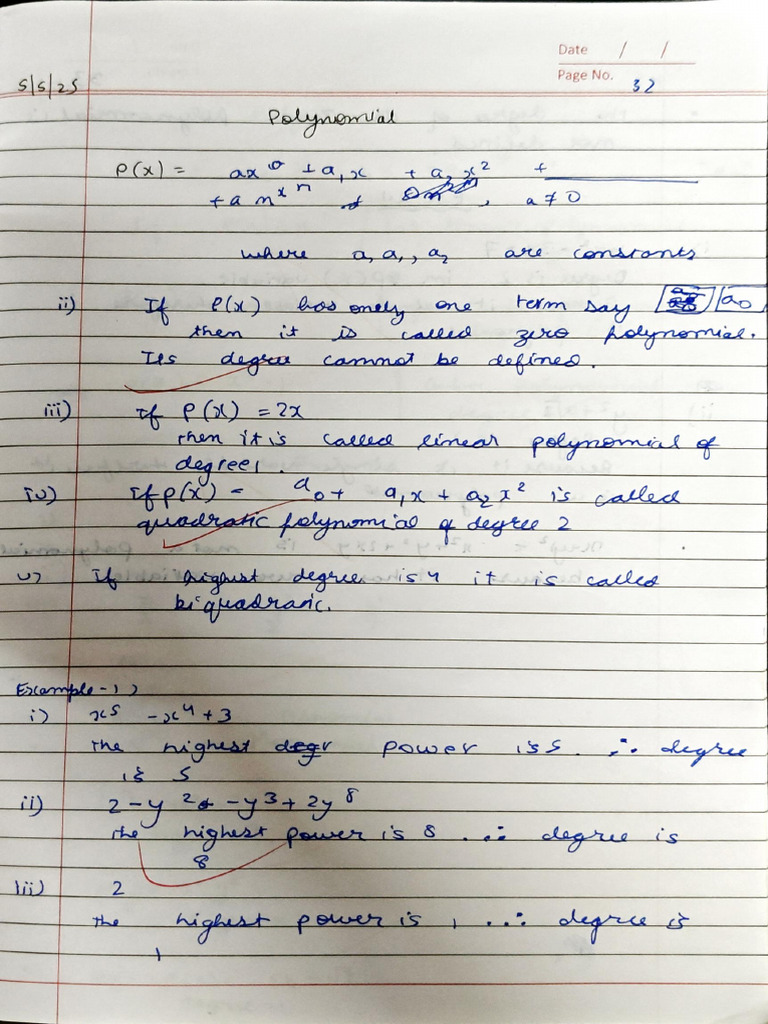 Date / /
Page No. 32
5/5/25
Polynomial
P(x) = ax⁰ + a₁x + a₂x² + ______
+ a n xⁿ , a ≠ 0
where a, a₁, a₂ are constants
ii) If P(x) has onely one term say a₀
then it is called zero polynomial.
Its degree cannot be defined.
iii) If P(x) = 2x
then it is called linear polynomial of
degree 1
iv) If p(x) = a₀ + a₁x + a₂x² is called
quadratic polynomial of degree 2
v) If highest degree is 4 it is called
biquadratic.
Example-1)
i) x⁵ - x⁴ + 3
The highest degr power is 5. ∴ degree
is 5
ii) 2 - y² - y³ + 2y⁸
The highest power is 8. ∴ degree is
8
iii) 2
The highest power is 1. ∴ degree is
1